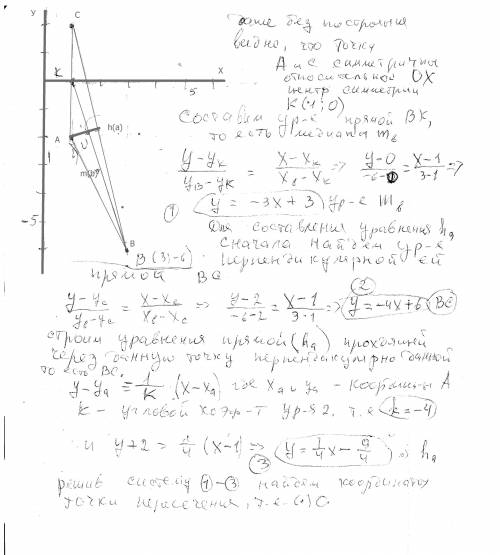 У
C
K
X
5
A
h(a)
U
1
m(b)
-5
B
B(3;-6)
даже без построения
видно, что точки
A и C симметричны
относительное OX
центр симметрии
K(1;0)
Составим ур-е прямой BK,
то есть медиана m_b
(y-y_K)/(y_B-y_K) = (x-x_K)/(x_B-x_K) => (y-0)/(-6-0) = (x-1)/(3-1) =>
① y = -3x+3 ур-е m_b
Для составления уравнения h_a
сначала найдём ур-е
перпендикулярной ей
прямой BC
(y-y_C)/(y_B-y_C) = (x-x_C)/(x_B-x_C) => (y-2)/(-6-2) = (x-1)/(3-1) => ② y=-4x+6 BC
строим уравнения прямой (h_a) проходящей
через данную точку перпендикулярно данной
то есть BC.
y-y_a = 1/K (x-x_a) где x_a и y_a - координаты A
K - угловой коэф-т ур-я 2, т.е. k=-4
и y+2 = 1/4 (x-1) => ③ y=1/4x - 9/4 h_a
решив систему ①-③ найдём координаты
точки пересечения, т.е. (·) O